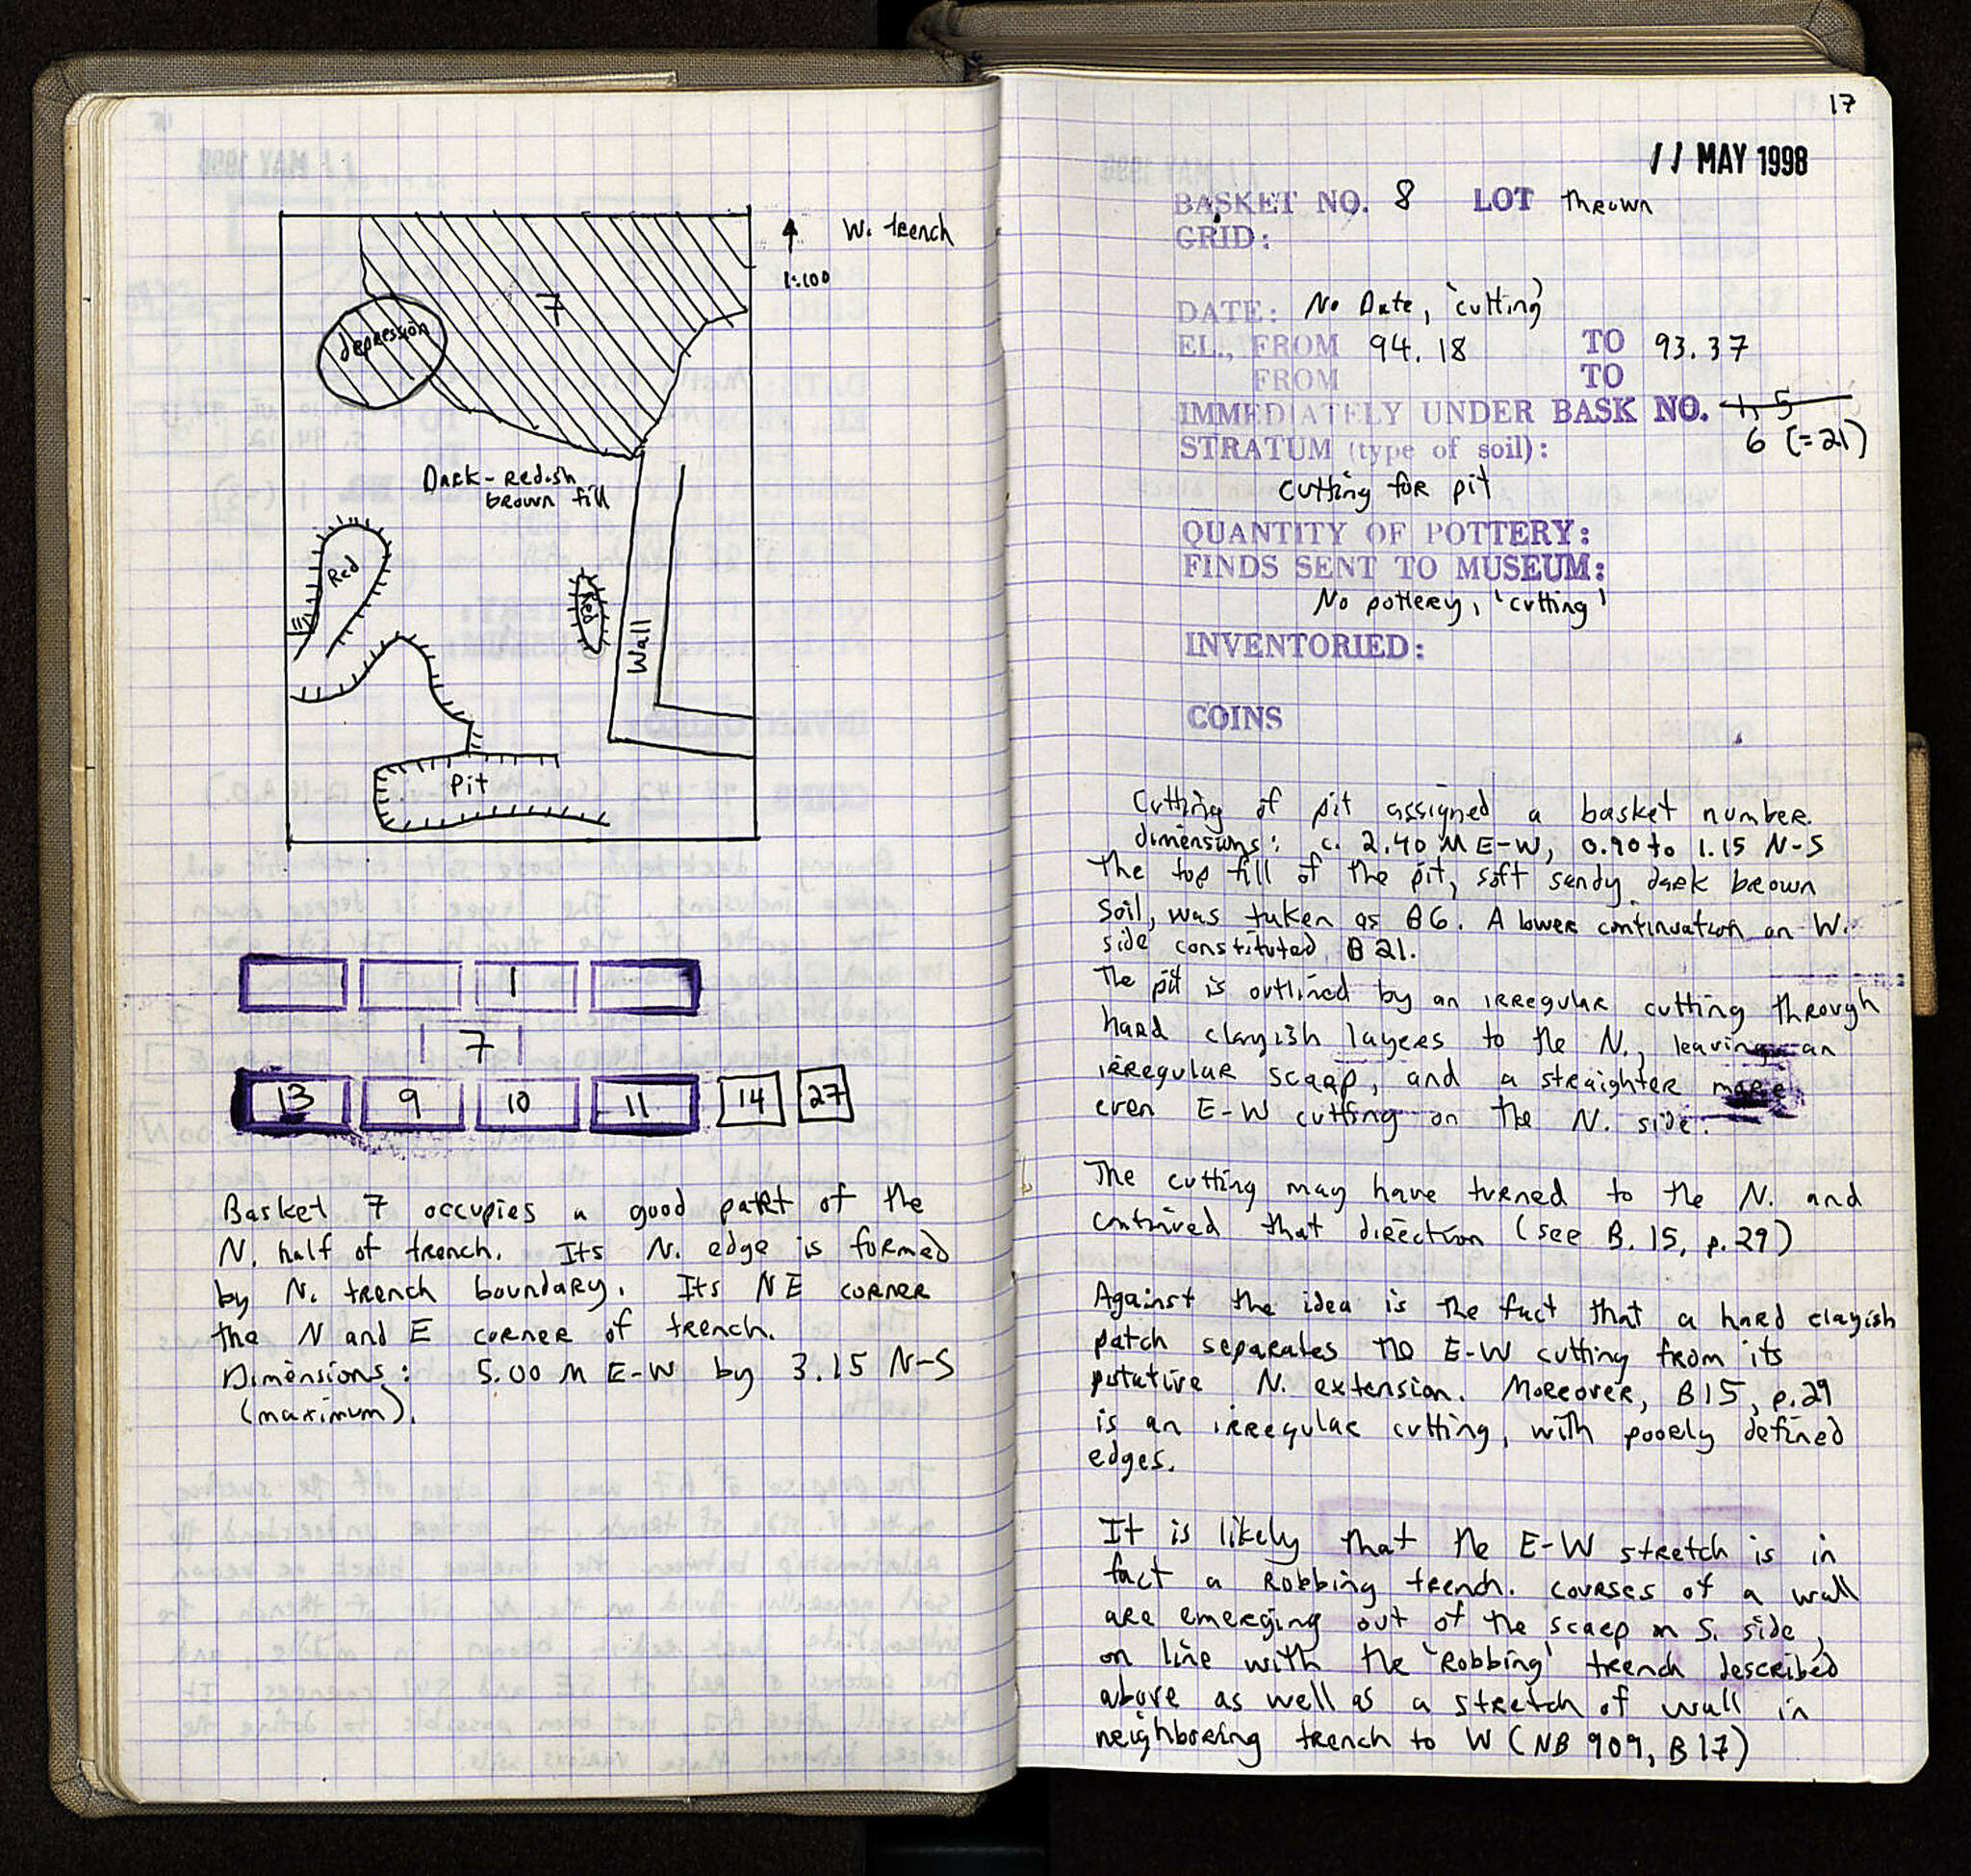 W. trench
1:100
7
depression
Dark-redish
brown fill
Red
Red
Wall
Pit
1
7
13 9 10 11 14 27
Basket 7 occupies a good part of the
N. half of trench. Its N. edge is formed
by N. trench boundary. Its NE corner
the N and E corner of trench.
Dimensions: 5.00 M E-W by 3.15 N-S
(maximum).
17
11 MAY 1998
BASKET NO. 8 LOT Thrown
GRID:
DATE: No Date, 'cutting'
EL., FROM 94.18 TO 93.37
FROM TO
IMMEDIATELY UNDER BASK NO. 1, 5
6 (=21)
STRATUM (type of soil):
cutting for pit
QUANTITY OF POTTERY:
FINDS SENT TO MUSEUM:
No pottery, 'cutting'
INVENTORIED:
COINS
Cutting of pit assigned a basket number.
dimensions: c. 2.40 M E-W, 0.90 to 1.15 N-S
The top fill of the pit, soft sandy dark brown
soil, was taken as B6. A lower continuation on W.
side constituted B 21.
The pit is outlined by an irregular cutting through
hard clayish layers to the N., leaving an
irregular scarp, and a straighter more
even E-W cutting on the N. side.
The cutting may have turned to the N. and
continued that direction (see B. 15, p. 29)
Against the idea is the fact that a hard clayish
patch separates the E-W cutting from its
putative N. extension. Moreover, B15, p.29
is an irregular cutting, with poorly defined
edges.
It is likely that the E-W stretch is in
fact a Robbing trench. courses of a wall
are emerging out of the scarp on S. side,
on line with the 'Robbing' trench described
above as well as a stretch of wall in
neighboring trench to W (NB 909, B17)